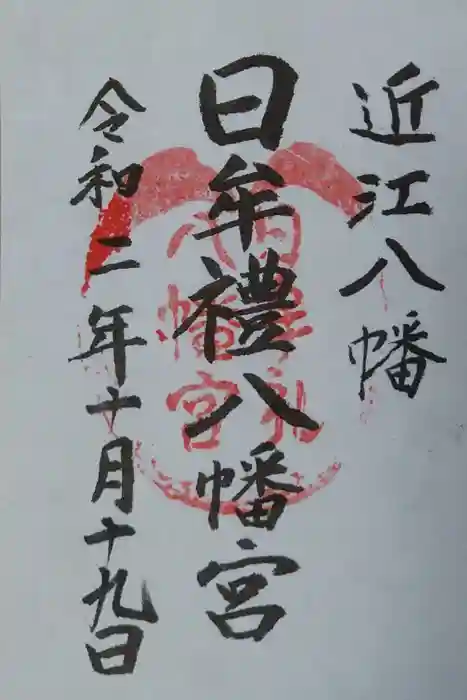 近江八幡
日牟禮八幡宮
令和二年十月十九日
日牟礼
八幡宮